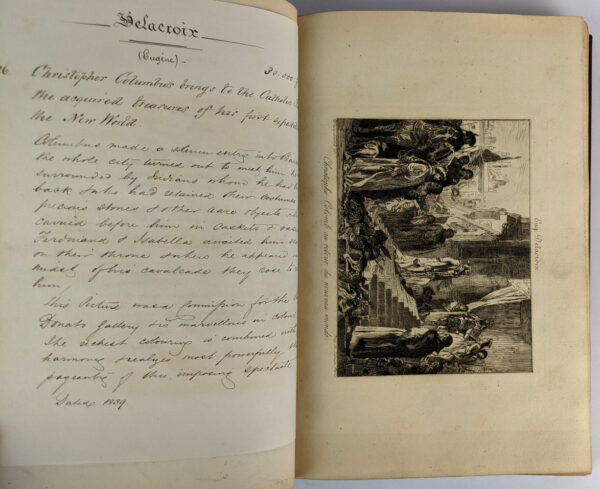 Delacroix
(Eugène) -
30.000
Christopher Columbus brings to the Catholic
the acquired treasures of his first
the New World.
Columbus made a solemn entry into
the whole city turned out to meet him
surrounded by Indians whom he had
back & who had retained their costumes
precious stones & other rare objects
carried before him in caskets &
Ferdinand & Isabella awaited him
on their throne & when he appeared
midst of his cavalcade they rose to
him/
This Picture was a Commission for the
Donato Gallery & is marvellous in
The richest colouring is combined with
harmony & realizes most powerfully
pageantry of this imposing spectacle
Dated 1839.
Eug. Delacroix
Christophe Colomb au retour du nouveau monde.